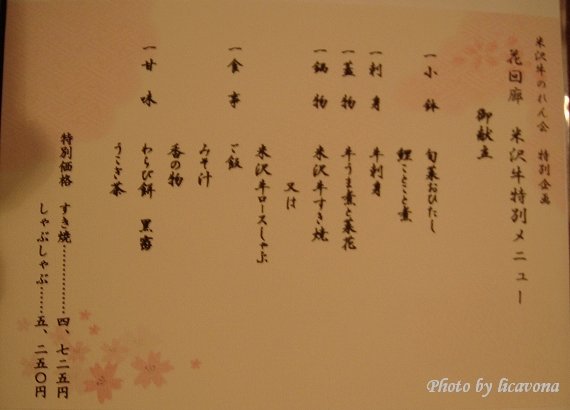 米沢牛のれん会 特別企画
花回廊 米沢牛特別メニュー
御献立
一 小鉢 旬菜おひたし
鯉ことこと煮
一 刺身 牛刺身
一 蓋物 牛うま煮と菜花
一 鍋物 米沢牛すき焼
又は
米沢牛ロースしゃぶ
一 食事 ご飯
みそ汁
香の物
一 甘味 わらび餅 黒蜜
うこぎ茶
特別価格 すき焼………………四、七二五円
しゃぶしゃぶ……五、二五〇円
Photo by licavona